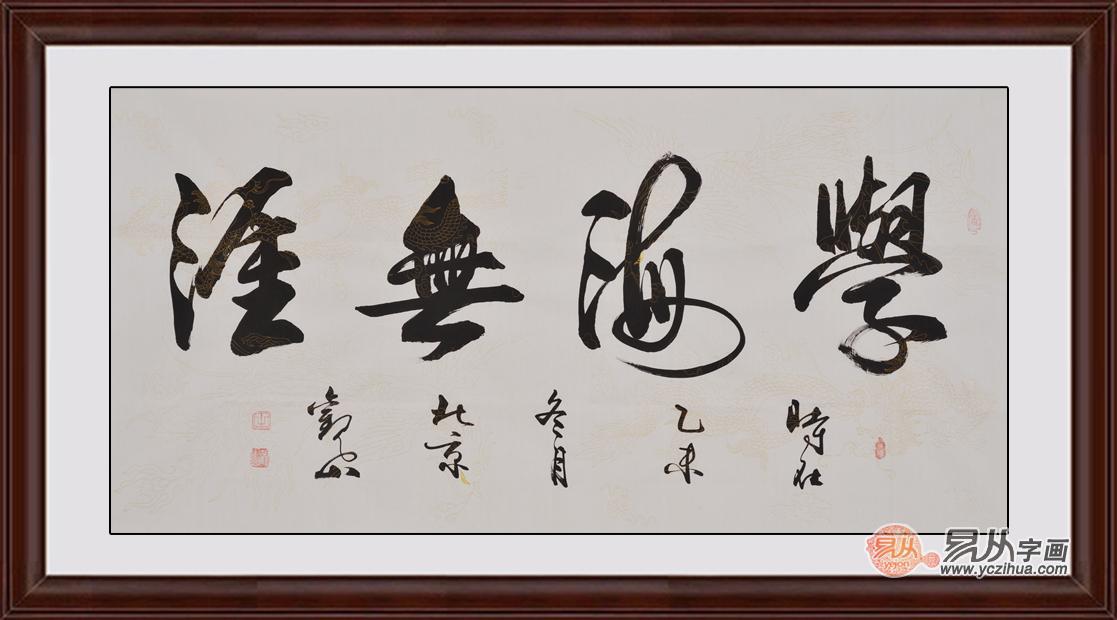 學海無涯
時在
乙未
冬月
北京
觀山
易从
yejon
易从字画
www.yczihua.com